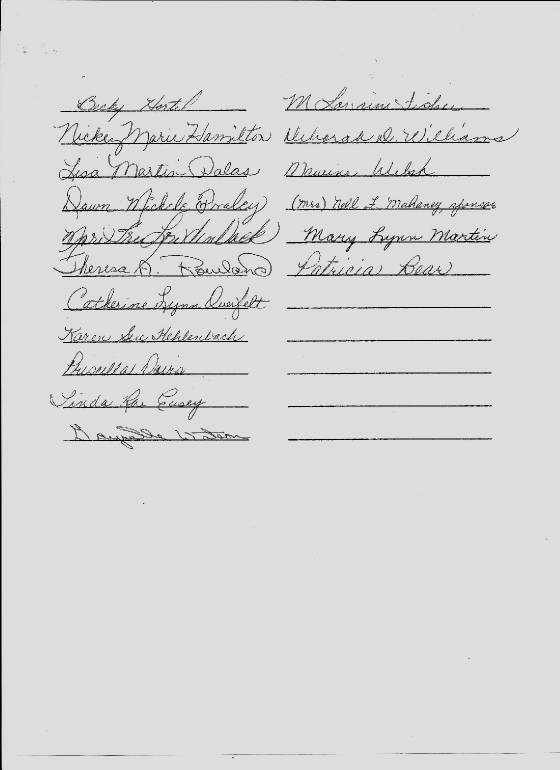 Becky Hortel
Nickey Marie Hamilton
Lisa Martin Dalas
Dawn Michele Praley
Theresa A. Rowland
Catherine Lynn Overfelt
Karen Sue Hehlenbach
Priscilla Davis
Linda Rae Easey
Watson
M Lorraine Fischer
Deborah D. Williams
Maurine Welsh
(Mrs) Nell F. Mahaney, sponsor
Mary Lynn Martin
Patricia Bear